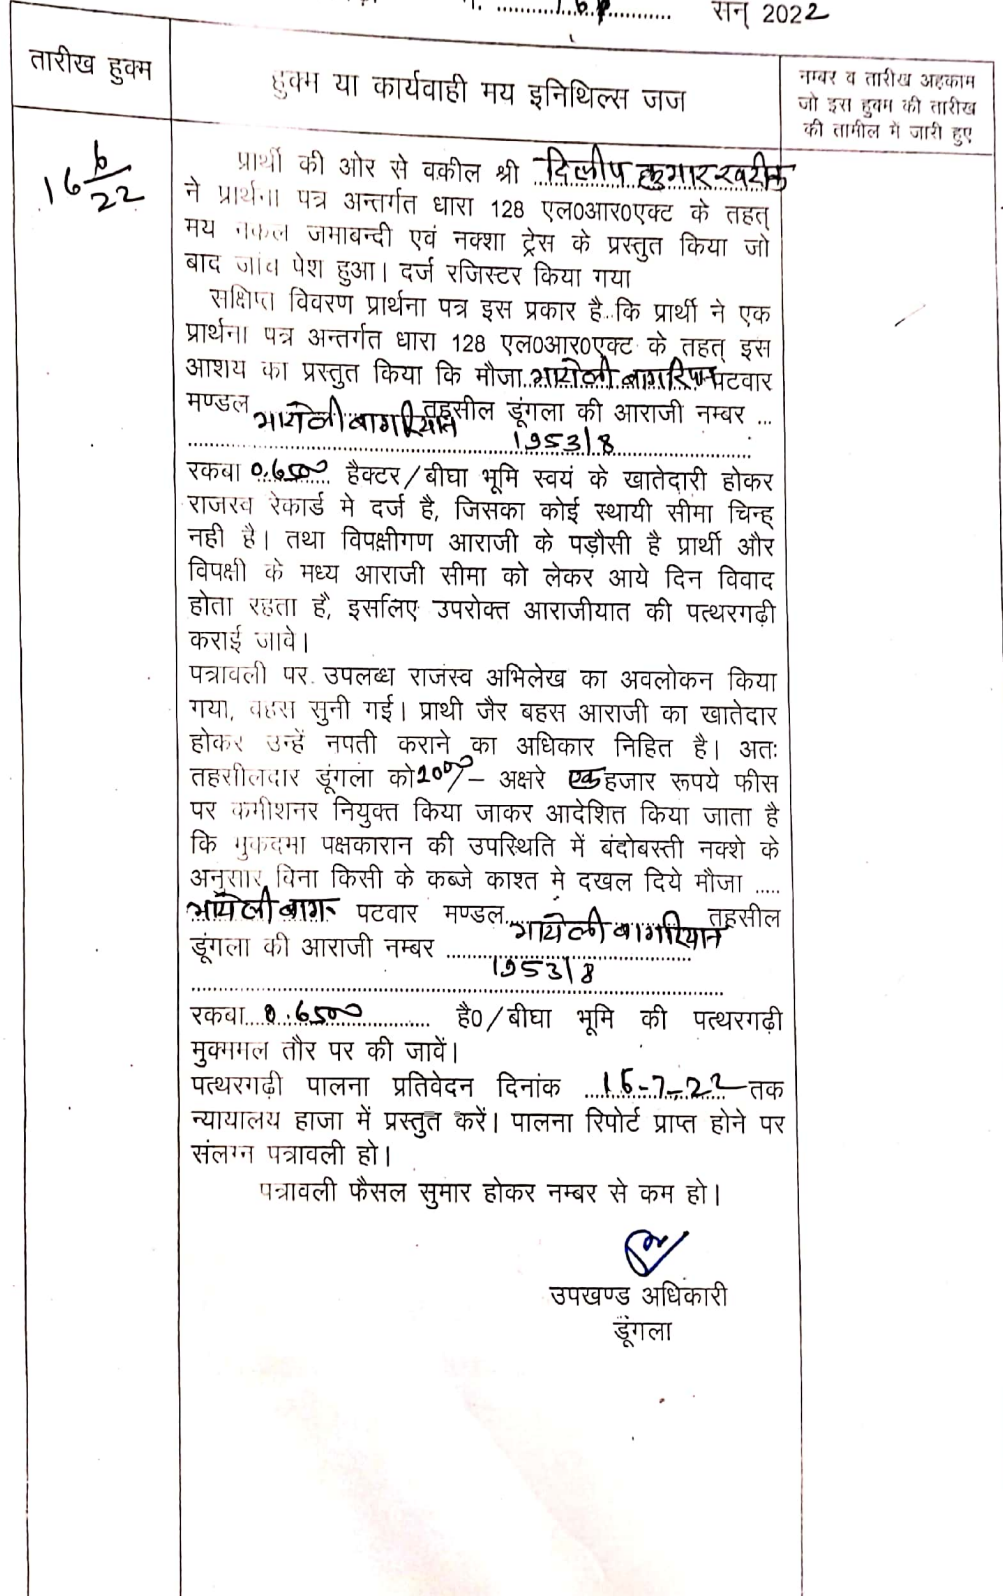 सन् 2022
तारीख हुक्म
हुक्म या कार्यवाही मय इनिथिल्स जज
नम्बर व तारीख अहकाम
जो इस हुक्म की तारीख
की तामील में जारी हुए
16 6/22
प्रार्थी की ओर से वकील श्री दिलीप कुमार
ने प्रार्थना पत्र अन्तर्गत धारा 128 एल0आर0एक्ट के तहत्
मय नकल जमाबन्दी एवं नक्शा ट्रेस के प्रस्तुत किया जो
बाद जांच पेश हुआ। दर्ज रजिस्टर किया गया
सक्षिप्त विवरण प्रार्थना पत्र इस प्रकार है कि प्रार्थी ने एक
प्रार्थना पत्र अन्तर्गत धारा 128 एल0आर0एक्ट के तहत् इस
आशय का प्रस्तुत किया कि मौजा पटवार
मण्डल तहसील डूंगला की आराजी नम्बर ...
1953/8
रकबा 0.6500 हैक्टर/बीघा भूमि स्वयं के खातेदारी होकर
राजस्व रेकार्ड मे दर्ज है, जिसका कोई स्थायी सीमा चिन्ह्
नही है। तथा विपक्षीगण आराजी के पड़ौसी है प्रार्थी और
विपक्षी के मध्य आराजी सीमा को लेकर आये दिन विवाद
होता रहता है, इसलिए उपरोक्त आराजीयात की पत्थरगढ़ी
कराई जावे।
पत्रावली पर उपलब्ध राजस्व अभिलेख का अवलोकन किया
गया, बहस सुनी गई। प्राथी जैर बहस आराजी का खातेदार
होकर उन्हें नपती कराने का अधिकार निहित है। अतः
तहसीलदार डूंगला को /- अक्षरे एक हजार रूपये फीस
पर कमीशनर नियुक्त किया जाकर आदेशित किया जाता है
कि मुकदमा पक्षकारान की उपस्थिति में बंदोबस्ती नक्शे के
अनुसार बिना किसी के कब्जे काश्त मे दखल दिये मौजा .....
पटवार मण्डल तहसील
डूंगला की आराजी नम्बर
1953/8
रकबा 0.6500 है0/बीघा भूमि की पत्थरगढ़ी
मुकमगल तौर पर की जावें।
पत्थरगढ़ी पालना प्रतिवेदन दिनांक 15-7-22 तक
न्यायालय हाजा में प्रस्तुत करें। पालना रिपोर्ट प्राप्त होने पर
संलग्न पत्रावली हो।
पत्रावली फैसल सुमार होकर नम्बर से कम हो।
उपखण्ड अधिकारी
डूंगला